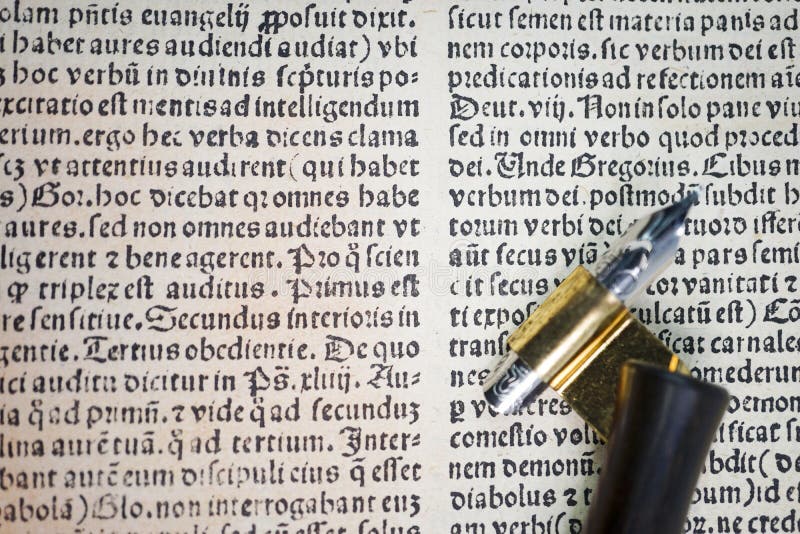 olam pn̄tis euangelij ꝓposuit dixit.
i habet aures audiendi audiat) vbi
ꝫ hoc verbū in diuinis scp̄turis po⸗
excitatio est mentis ad intelligendum
erium. ergo hec verba dicens clama
scꝫ vt attentius audirent (qui habet
s) Gor. hoc dicebat qꝛ omnes habe
aures. sed non omnes audiebant vt
ligerent ⁊ bene agerent. Pro q̊ scien
ꝙ triplex est auditus. Primus est
re sensitiue. Secundus interioris in
gentie. Tertius obedientie. De quo
ici auditu dicitur in Ps̄. xliiij. Au⸗
ia q̊ad primū. ⁊ vide q̊ad secunduꝫ
lina aurē tuā. q̊ ad tertium. Inter⸗
bant autē eum discipuli eius q̄ esset
abola) Glo. non interrogabant euꝫ
sicut semen est materia panis ad
nem corporis. sic verbum dei est
predicationis ad refectionem aīe
Deut. viij. Non in solo pane viu
sed in omni verbo quod proced
dei. Unde Gregorius. Cibus
verbum dei. postmodū subdit h
torum verbi dei
aūt secus viā a pars semi
cit secus vanitati ⁊
ti catū est)
ficat carnales
nes
ꝑ
comestio ficat
nem demonū. bdit (
diabolus ⁊ bum) id est
am verbi (de or. ne crede